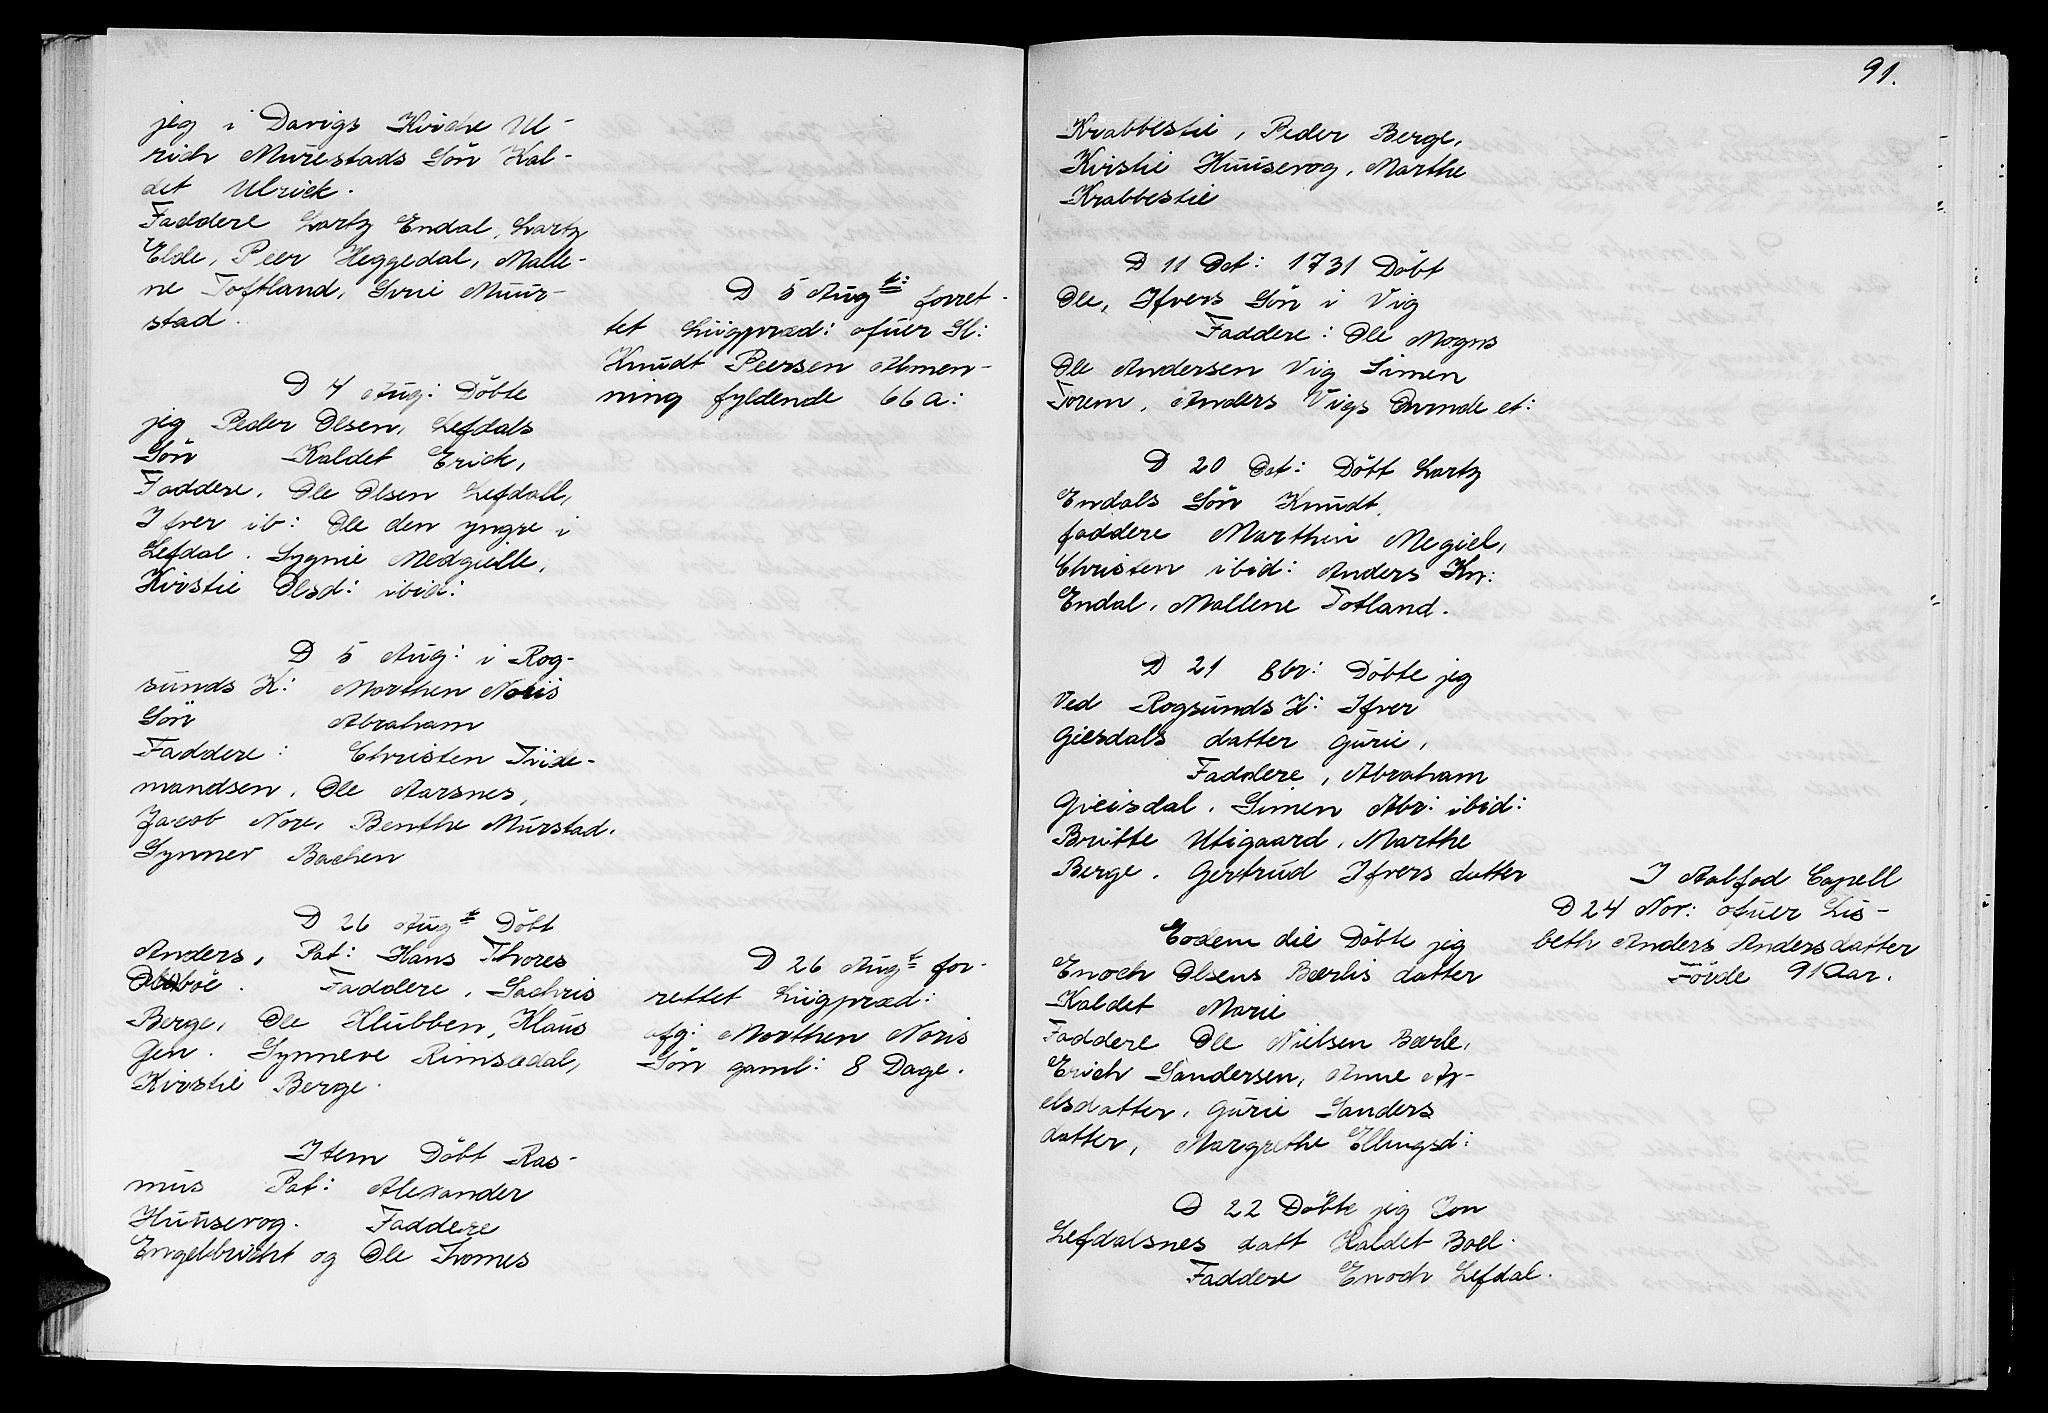 jeg i Davigs Kirche Ul-
rich Murestads Sön Kal-
det Ulrick.
Faddere Lartz Endal, Lartz
Elde, Peer Heggedal, Malle-
ne Toftland, Sirie Muur-
stad.
D 7 Aug: Döbte
jeg Peder Olsen, Lefdals
Sön Kaldet Erick,
Faddere, Ole Olsen Lefdall,
Ifver ib: Ole den yngre i
Lefdal. Sygnie Medgielle,
Kirstie Olsd: ibid:
D 5 Aug: i Rog-
sunds K: Morthen Noris
Sön Abraham
Faddere: Christen Tiide-
mandsen, Ole Aarsnes,
Jacob Nore, Benthe Murstad.
Synner Bachen
D 26 Augt Döbt
Anders, Pat: Hans Thores
Faddere, Sachris
Berge, Ole Klubben, Klaus
Gen. Synneve Rimsledal,
Kirstie Berge.
Item Döbt Ras-
mus Pat: Alexander
Huusevog. Faddere
Engelbricht og Ole Tromes
D 5 Augt: forret-
tet Liigpræd: ofuer Sl:
Knudt Peersen Almen-
ning fyldende 66 a:
D 26 Augt for-
rettet Liigpræd:
ofg: Morthen Noris
Sön gaml: 8 Dage.
91.
Krabbestie, Peder Berge,
Kirstie Huusevog, Marthe
Krabbestie
D 11 Oct: 1731 Döbt
Ole, Ifvers Sön i Vig
Faddere: Ole Mogns
Ole Andersen Vig Simen
Torem, Anders Vigs Qvinde et:
D 20 Oct: Döbt Lartz
Endals Sön Knudt,
faddere Marthin Megiel,
Christen ibid: Anders Kn:
Endal, Mallene Totland.
D 21 8br: Döbte jeg
Ved Rogsunds K: Ifver
Giesdals datter Gurie,
Faddere, Abraham
Gieisdal. Simen Abr: ibid:
Britte Utigaard, Marthe
Berge. Gertrud Ifvers datter
Eodem die Döbte jeg
Enoch Olsens Bærlis datter
Kaldet Marie
Faddere Ole Nielsen Bærle,
Erich Sandersen, Anne Ax-
elsdatter, Gurie Sanders
datter, Margrethe Ellingsd:
D 22 Döbte jeg Jon
Lefdalsnes datt Kaldet Boel.
Faddere Enoch Lefdal.
I Aalfod Capell
D 24 Nov: ofuer Lis-
beth Anders Andersdatter
Förde 91 Aar.